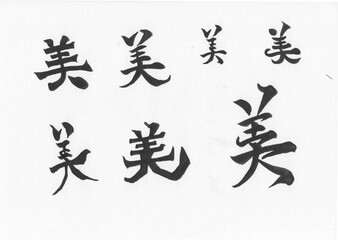 美 美 美 美
美 美 美